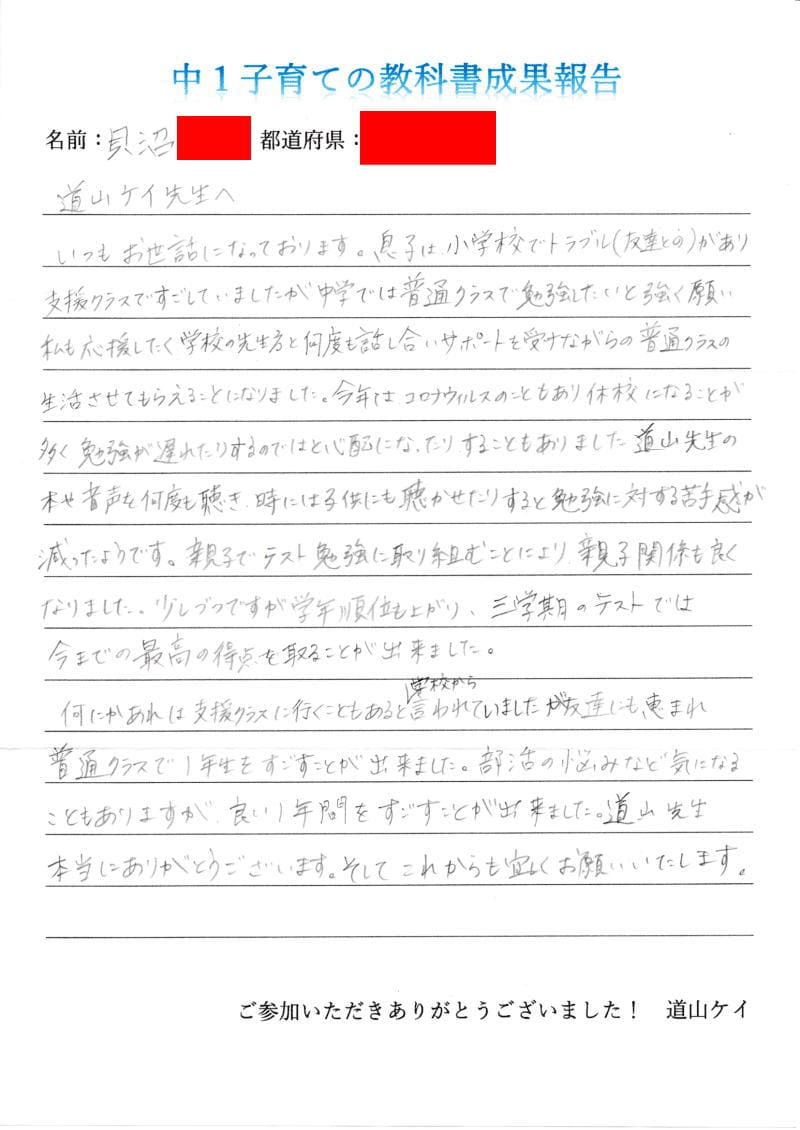 中１子育ての教科書成果報告
名前：貝沼 都道府県：
道山ケイ先生へ
いつもお世話になっております。息子は小学校でトラブル(友達との)があり
支援クラスですごしていましたが中学では普通クラスで勉強したいと強く願い
私も応援したく学校の先生方と何度も話し合いサポートを受けながらの普通クラスの
生活させてもらえることになりました。今年はコロナウィルスのこともあり休校になることが
多く勉強が遅れたりするのではと心配になったりすることもありました道山先生の
本や音声を何度も聴き、時には子供にも聴かせたりすると勉強に対する苦手感が
減ったようです。親子でテスト勉強に取り組むことにより、親子関係も良く
なりました。少しづつですが学年順位も上がり、三学期のテストでは
今までの最高の得点を取ることが出来ました。
何にかあれは支援クラスに行くこともあると学校から言われていましたが友達にも恵まれ
普通クラスで1年生をすごすことが出来ました。部活の悩みなど気になる
こともありますが、良い1年間をすごすことが出来ました。道山先生
本当にありがとうございます。そしてこれからも宜しくお願いいたします。
ご参加いただきありがとうございました！ 道山ケイ